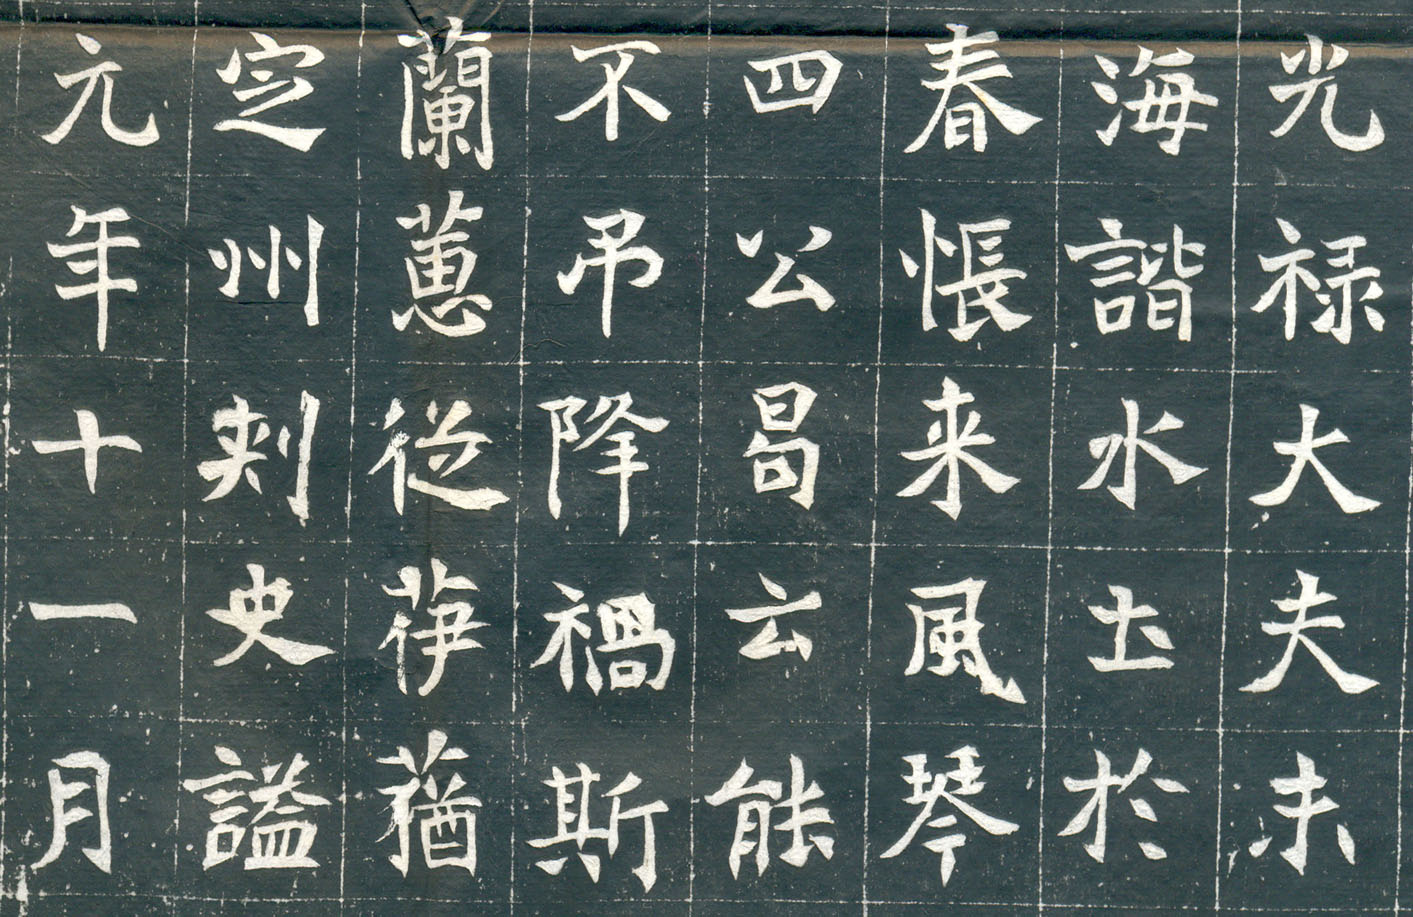 光禄大夫未
海諧水土於
春帳来風琴
四公曷云能
不吊降禍斯
蘭蕙從蕕
定州刾史謚
元年十一月